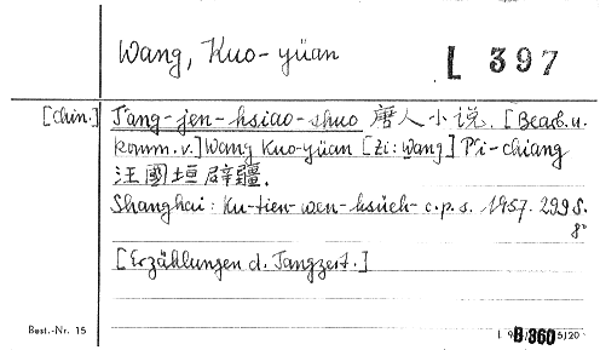 Wang, Kuo-yüan
L 397
[chin.] T'ang-jen-hsiao-shuo 唐人小说. [Bearb. u.
komm. v.] Wang Kuo-yüan [Zi: Wang] P'i-chiang
汪國垣辟疆.
Shanghai: Ku-tien-wen-hsüeh-c.p.s. 1957. 299 S.
8°
[Erzählungen d. Tangzeit.]
Best.-Nr. 15
B 360